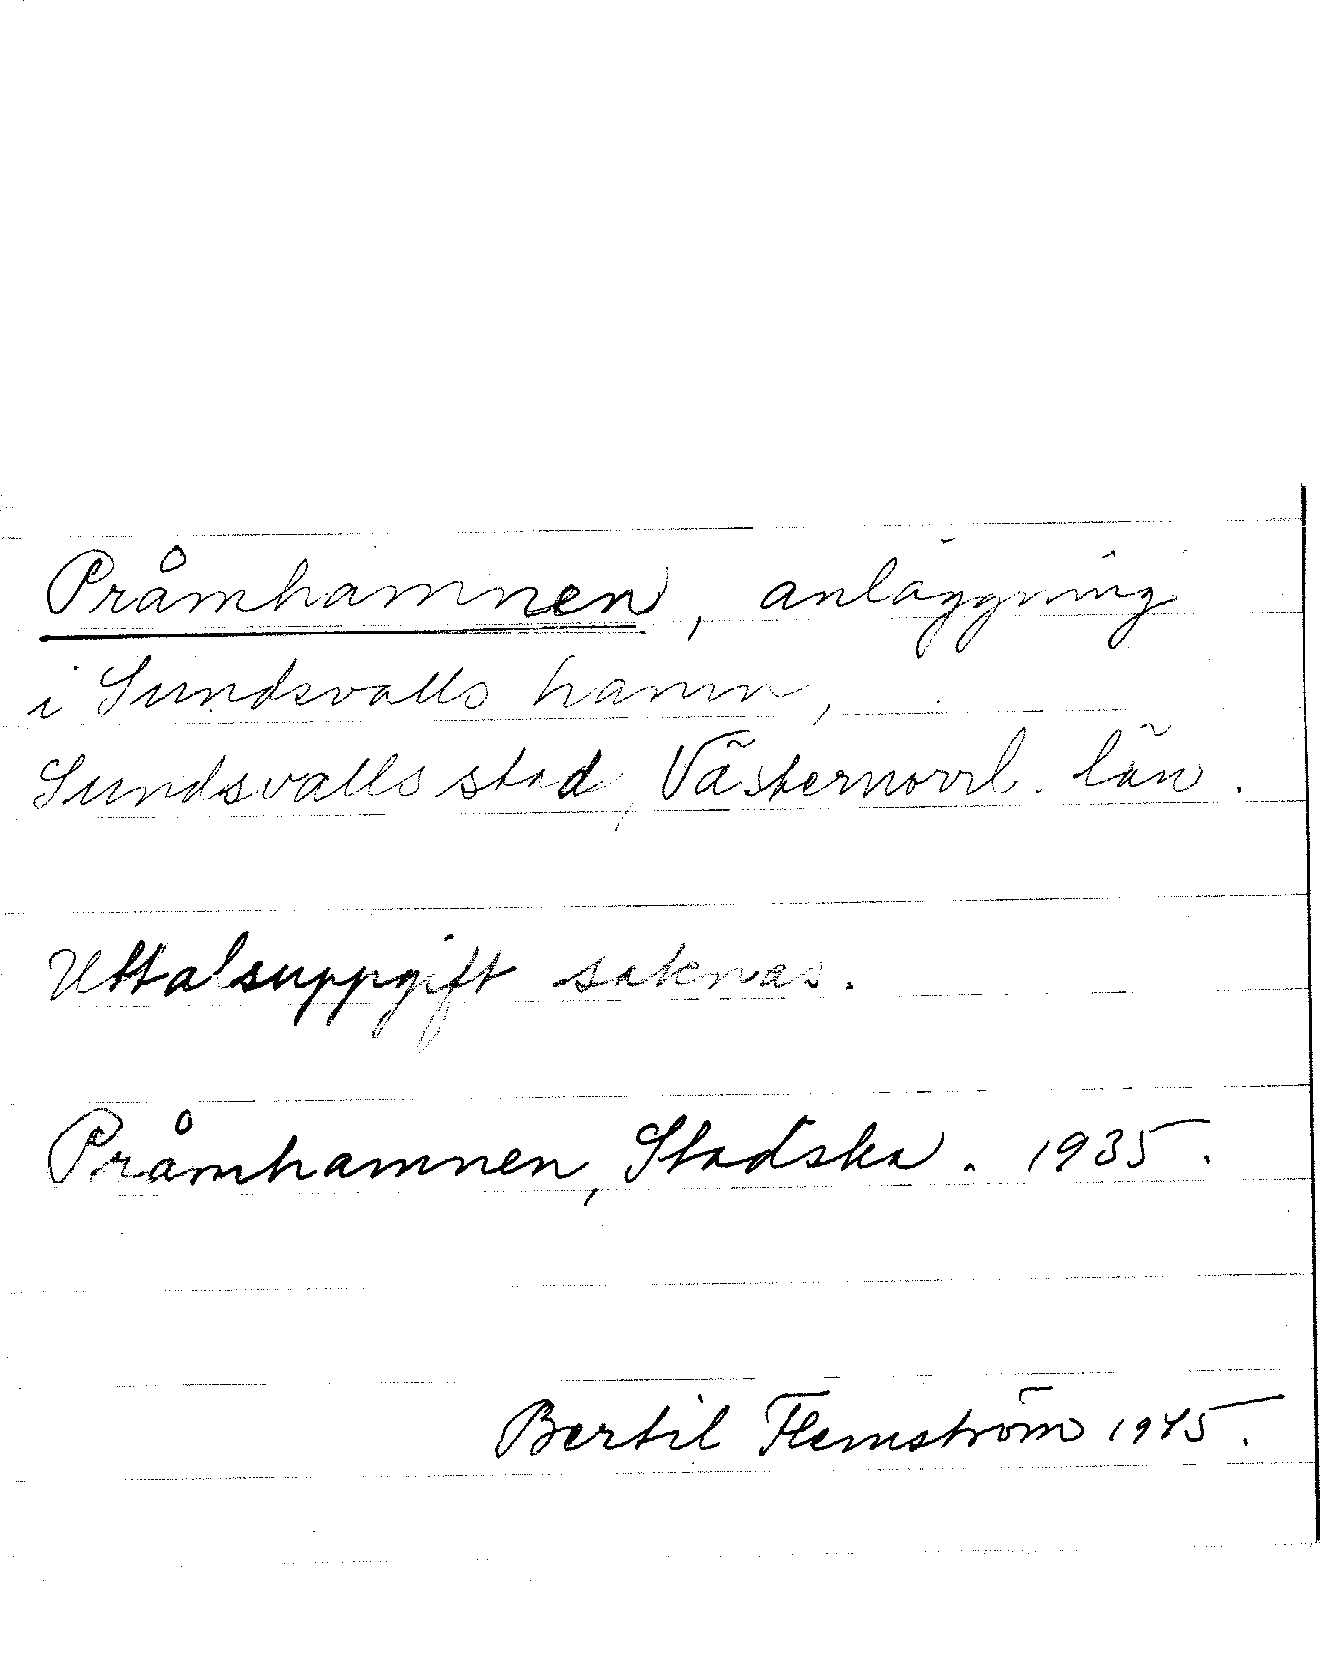 Pråmhamnen, anläggning
i Sundsvalls hamn,
Sundsvalls stad, Västernorrl. län.
Uttalsuppgift saknas.
Pråmhamnen, Stadska. 1935.
Bertil Flemström 1945.